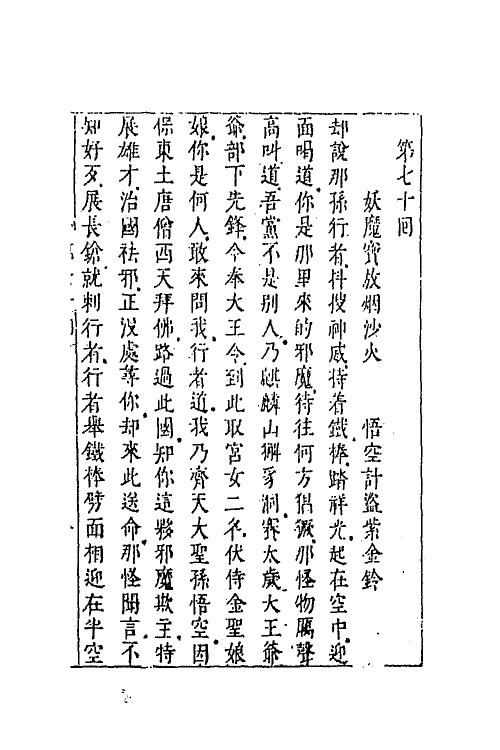 第七十回
妖魔寶放烟沙火 悟空計盜紫金鈴
却說那孫行者抖搜神威持着鐵棒踏祥光起在空中迎
面喝道你是那里來的邪魔待往何方猖獗那怪物厲聲
高叫道吾黨不是別人乃麒麟山獬豸洞賽太歲大王爺
爺部下先鋒今奉大王令到此取宮女二名伏侍金聖娘
娘你是何人敢來問我行者道我乃齊天大聖孫悟空因
保東土唐僧西天拜佛路過此國知你這夥邪魔欺主特
展雄才治國祛邪正沒處尋你却來此送命那怪聞言不
知好歹展長鎗就刺行者行者舉鐵棒劈面相迎在半空